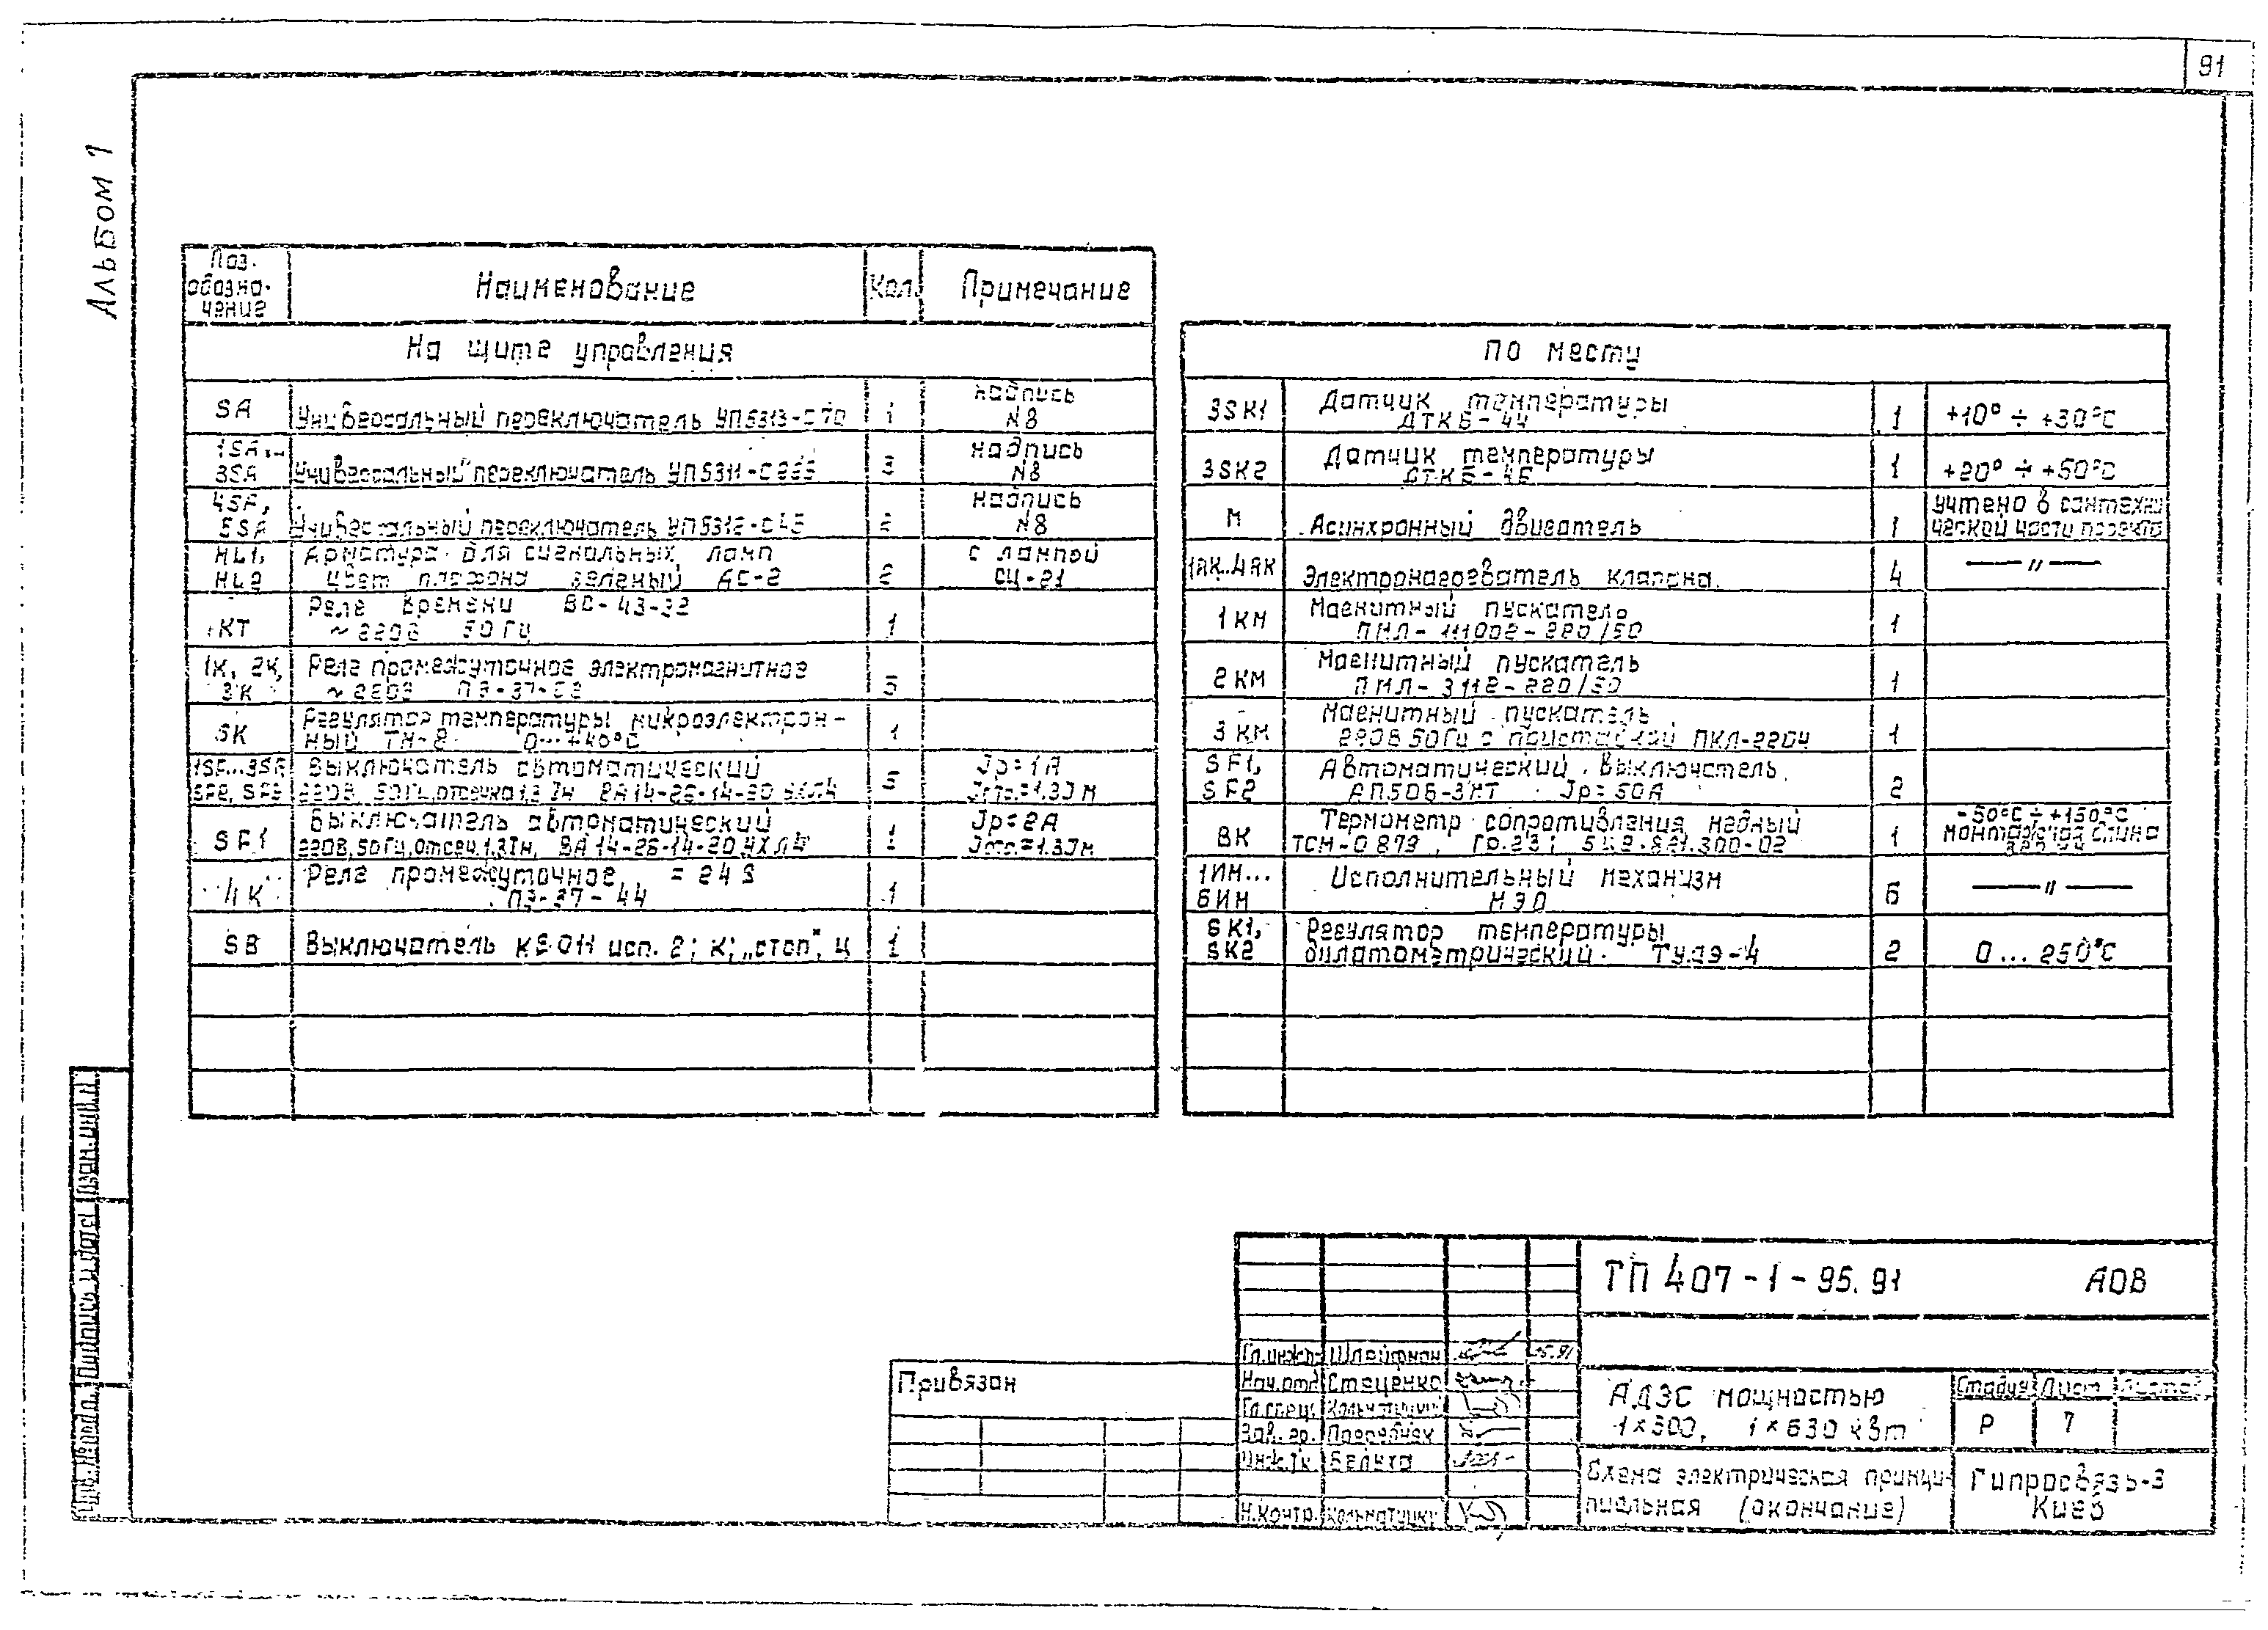 91
Альбом 1
Поз. обозна-чение
Наименование
Кол.
Примечание
На щите управления
SA
Универсальный переключатель УП5313-С70
1
надпись N8
1SA... 3SA
Универсальный переключатель
3
надпись N8
Универсальный переключатель
2
надпись N8
HL1, HL2
Арматура для сигнальных ламп
цвет плафона зеленый АС-2
2
с лампой СЦ-21
КТ
Реле времени ВС-43-32
~220В 50Гц
1
1К, 2К, 3К
Реле промежуточное электромагнитное
~220В
SK
Регулятор температуры микроэлектрон-
ный ТМ-8 0...+40°С
1
1SF...3SF
Выключатель автоматический
220В, 50Гц, отсечка 1,3Iн
5
Jр=1А
SF1
Выключатель автоматический
220В, 50Гц, отсеч. 1,3Iн, ВА14-26-14-20УХЛ4
1
Jр=2А
Jотс.=1.3Jн
4К
Реле промежуточное =24В
ПЭ-37-44
1
SB
Выключатель КЕ-011 исп. 2; К; „стоп", Ц
1
По месту
3SK1
Датчик температуры
ДТКБ-44
1
+10° ÷ +30°С
3SK2
Датчик температуры
1
+20° ÷ +50°С
М
Асинхронный двигатель
1
учтено в сантехни
ческой части проекта
Электронагреватель клапана
4
—〃—
1КМ
Магнитный пускатель
ПМЛ-111002-220/50
1
2КМ
Магнитный пускатель
ПМЛ-3112-220/50
1
3КМ
Магнитный пускатель
220В 50Гц с приставкой ПКЛ-2204
1
SF1, SF2
Автоматический выключатель
АП50Б-3МТ Jр=50А
2
ВК
Термометр сопротивления медный
ТСМ-0879, Гр.23; 5Ц2.821.300-02
1
-50°С ÷ +150°С
монтажная длина
1ИМ... 6ИМ
Исполнительный механизм
МЭО
6
—〃—
SK1, SK2
Регулятор температуры
дилатометрический ТУДЭ-4
2
0...250°С
Взам.инв.N
Подпись и дата
Инв.N подл.
Привязан
Гл.инж.пр Шлейфман 05.91
Нач.отд. Стаценко
Гл.спец.
Зав. гр.
Инж.Iк.
Н.контр.
ТП 407-1-95.91 АОВ
АДЭС мощностью
1×500, 1×630 кВт
Стадия Лист Листов
Р 7
Схема электрическая принци-
пиальная (окончание)
Гипросвязь-3
Киев